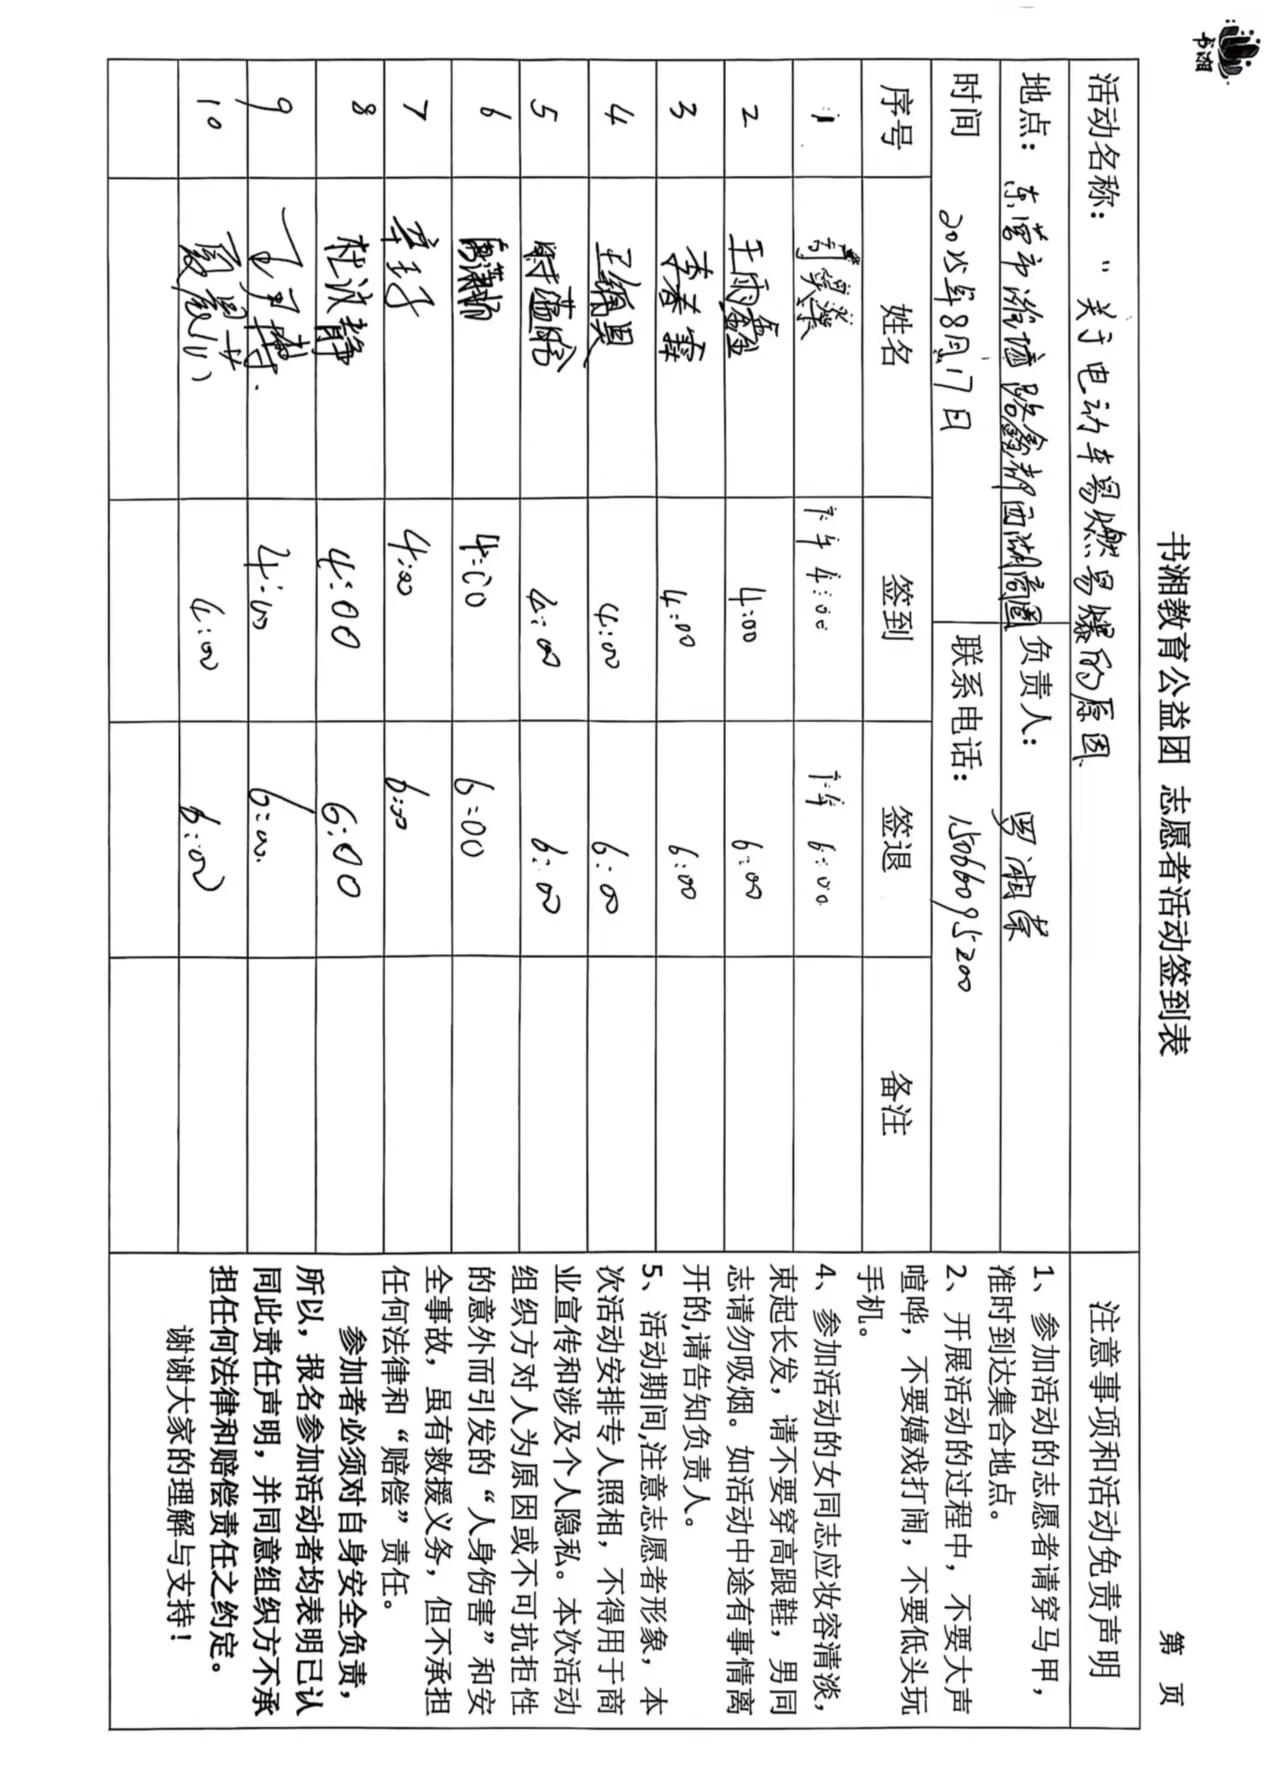 书湘
第 页
书湘教育公益团 志愿者活动签到表
活动名称： “关于电动车易燃易爆的原因
注意事项和活动免责声明
地点： 东营市潍坊路鑫都西湖商圈 负责人：
时间 2025年8月17日 联系电话： 15066095200
序号 姓名 签到 签退 备注
1 下午 4:00 下午 6:00
2 王雨鑫 4:00 6:00
3 李春霖 4:00 6:00
4 4:00 6:00
5 4:00 6:00
6 4:00 6:00
7 4:00 6:00
8 杜淑静 4:00 6:00
9 4:00 6:00.
10 4:00 6:00
1、参加活动的志愿者请穿马甲，
准时到达集合地点。
2、开展活动的过程中，不要大声
喧哗，不要嬉戏打闹，不要低头玩
手机。
4、参加活动的女同志应妆容清淡，
束起长发，请不要穿高跟鞋，男同
志请勿吸烟。如活动中途有事情离
开的,请告知负责人。
5、活动期间,注意志愿者形象，本
次活动安排专人照相，不得用于商
业宣传和涉及个人隐私。本次活动
组织方对人为原因或不可抗拒性
的意外而引发的“人身伤害”和安
全事故，虽有救援义务，但不承担
任何法律和“赔偿”责任。
参加者必须对自身安全负责，
所以，报名参加活动者均表明已认
同此责任声明，并同意组织方不承
担任何法律和赔偿责任之约定。
谢谢大家的理解与支持！